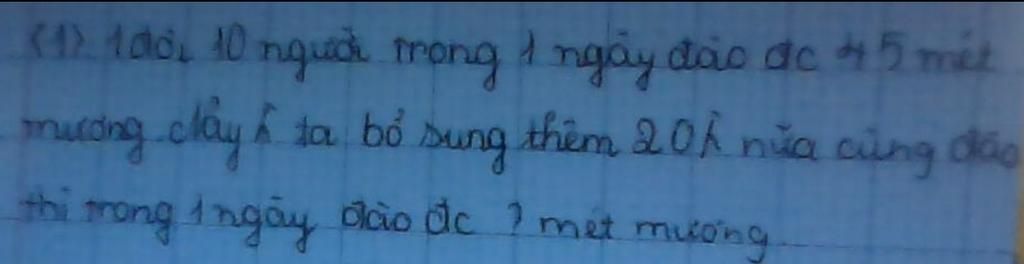 (1) 1 đội 10 người trong 1 ngày đào đc 45 mét
mương. Nay ta bổ sung thêm 20 nữa cùng đào
thì trong 1 ngày đào đc ? mét mương